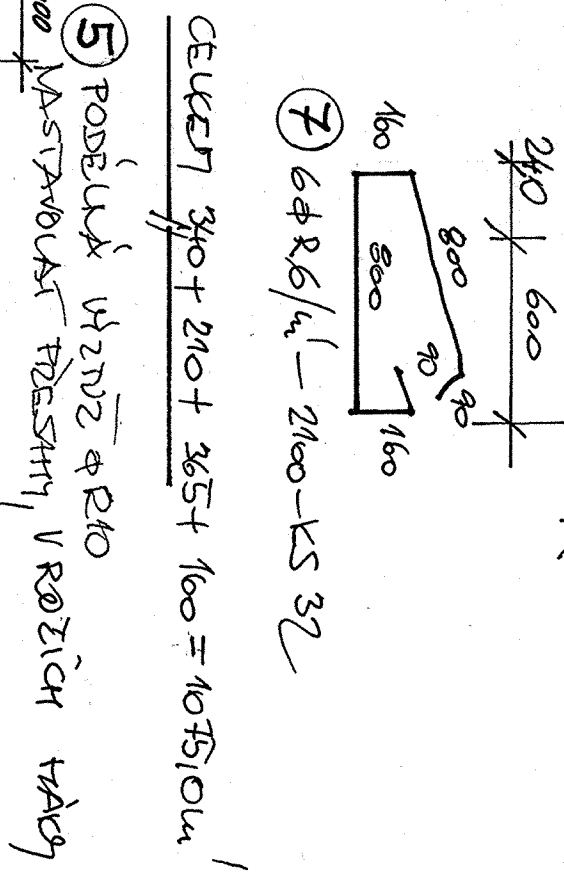 240 600
800 90
160 90
800 160
7 6ØR6/m' – 2100 – KS 32
CELKEM 340 + 210 + 365 + 160 = 1075,0m'
5 PODÉLNÁ VÝZTUŽ ØR10
00 NASTAVOVAT PŘESAHY, V ROŽÍCH HÁKY